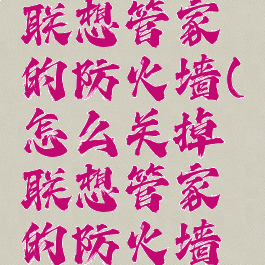 联想管家
的防火墙(
怎么关掉
联想管家
的防火墙